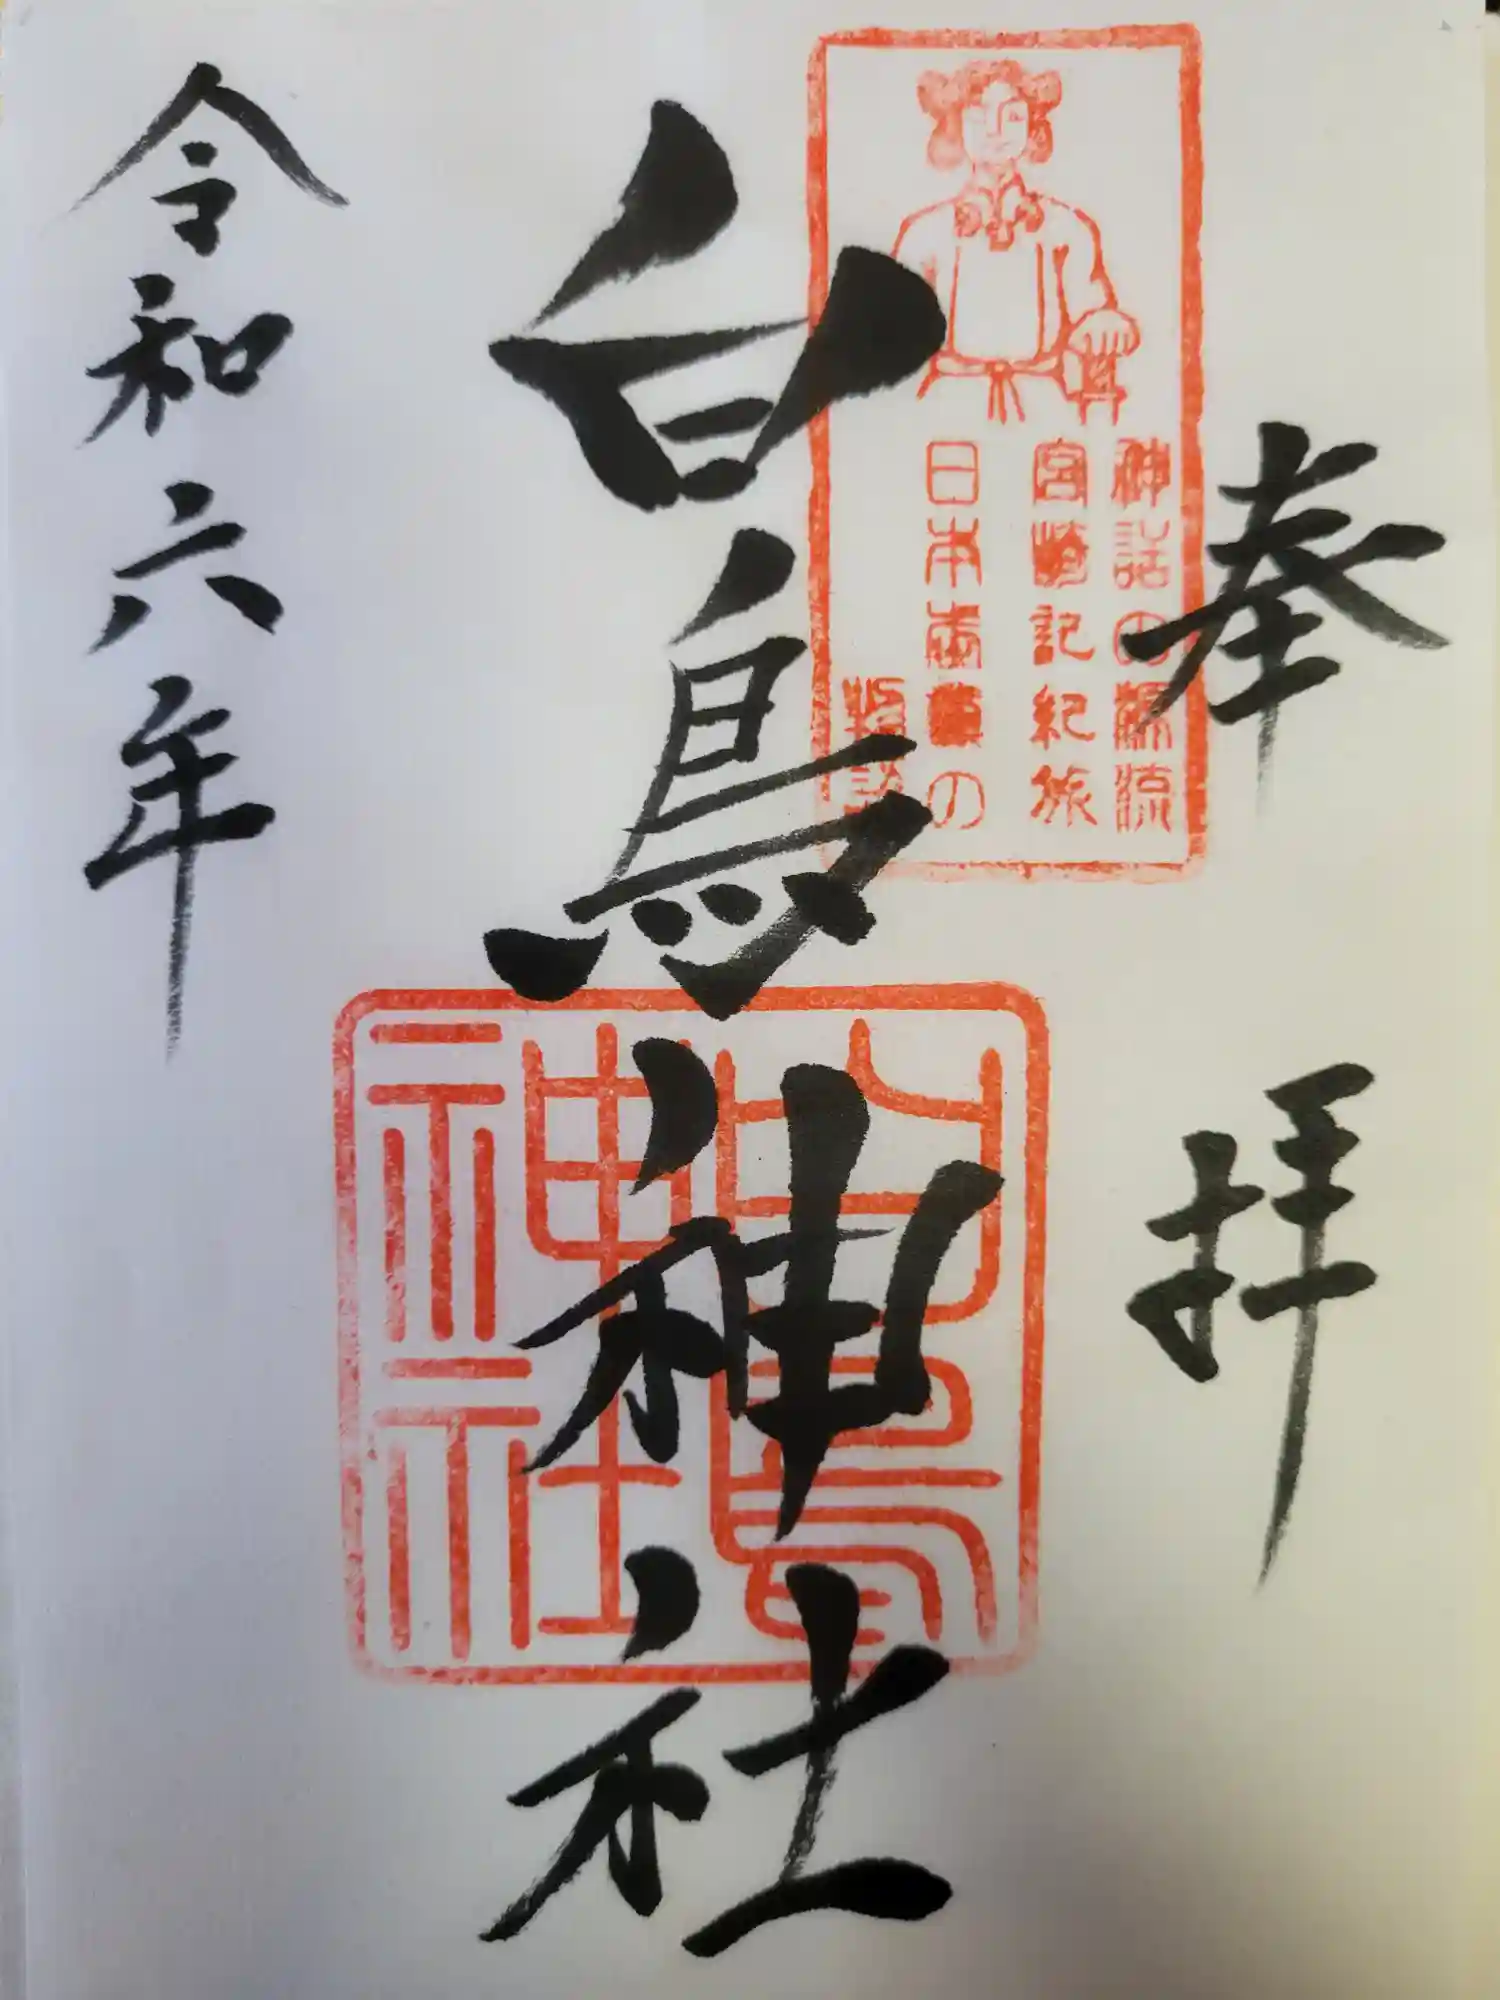 奉拝
神話の源流
宮崎記紀旅
日本書紀の
物語
白鳥神社
白鳥神社
令和六年